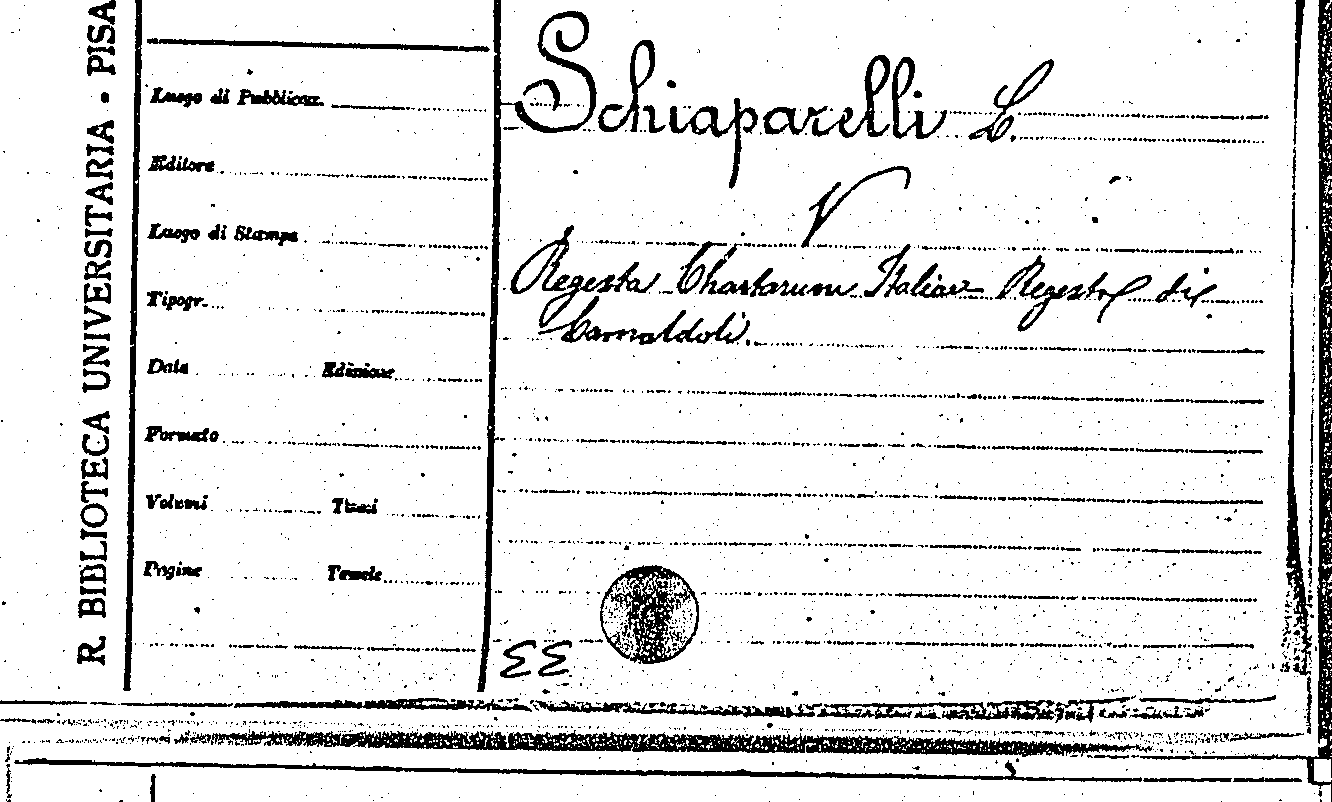 R. BIBLIOTECA UNIVERSITARIA - PISA
Luogo di Pubblicaz.
Editore
Luogo di Stampa
Tipogr.
Data Edizione
Formato
Volumi Tomi
Pagine Tavole
Schiaparelli L.
V
Regesta Chartarum Italiae Regesto di
Camaldoli.